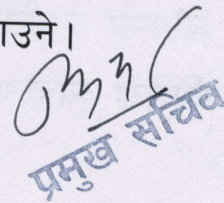 ाउने।
प्रमुख सचिव